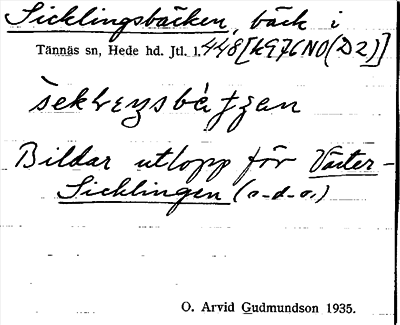 Sicklingsbäcken, bäck i
Tännäs sn, Hede hd. Jtl. l. 448[k976NO(D2)]
Bildar utlopp för Väster-
Sicklingen (o-d-o.)
O. Arvid Gudmundson 1935.